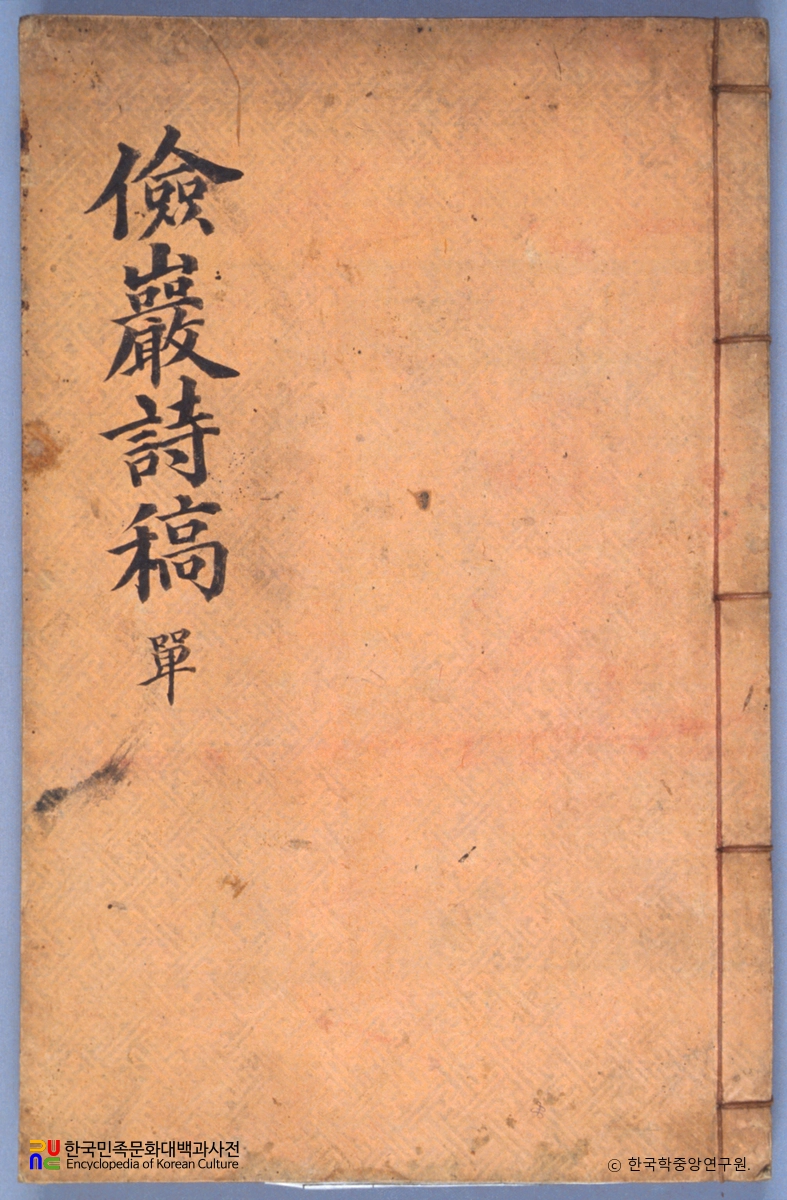 儉巖詩稿 單
한국민족문화대백과사전
Encyclopedia of Korean Culture
© 한국학중앙연구원.